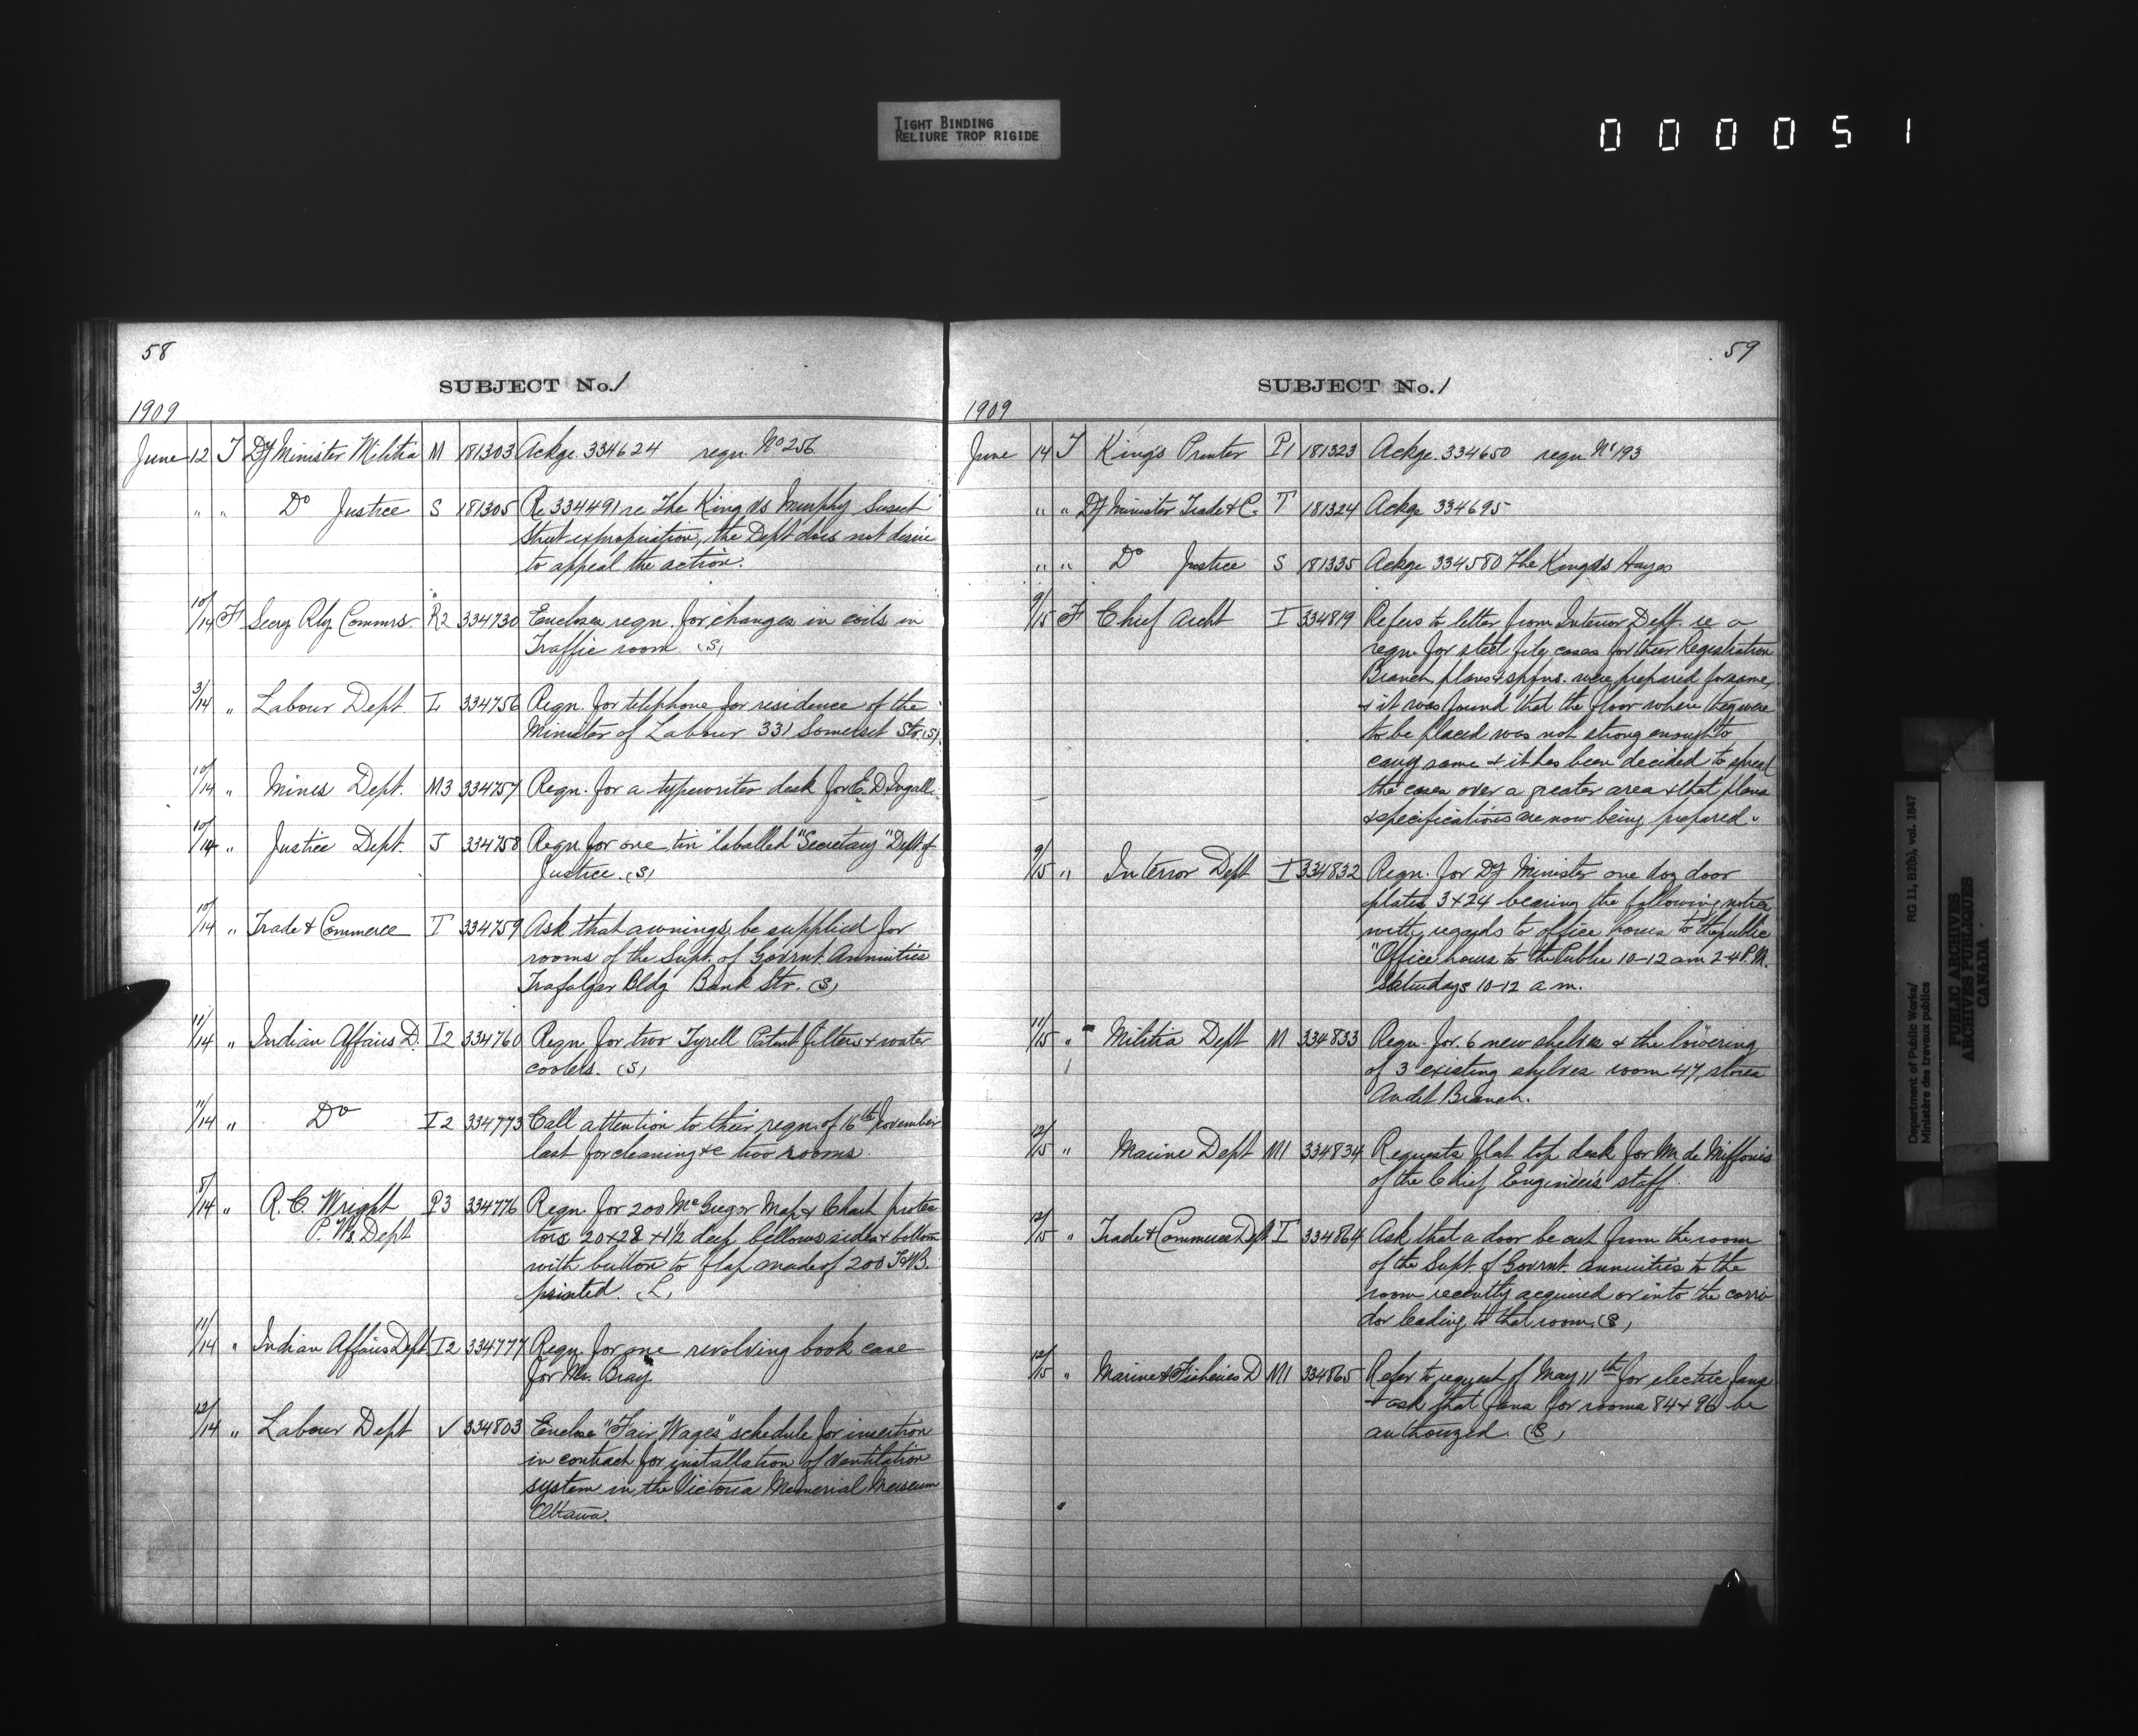 TIGHT BINDING
RELIURE TROP RIGIDE
000051
58
SUBJECT No. 1
1909
June 12 T Dy Minister Militia M 181303 Ackge. 334624 regn. No 256
" " Do Justice S 181305 Re 334491 re The King vs Murphy Sussex
Street expropriation, the Dept does not desire
to appeal the action.
10/14 F Secry Rly. Commrs. R2 334730 Encloses regn. for changes in coils in
Traffic room (S)
3/14 " Labour Dept L 334756 Regn. for telephone for residence of the
Minister of Labour 331 Somerset Str. (S)
10/14 " Mines Dept. M3 334757 Regn. for a typewriter desk for E. D. Ingall.
10/14 " Justice Dept. J 334758 Regn for one tin "laballed "Secretary" Dept. of
Justice. (S)
10/14 " Trade & Commerce T 334759 Ask that awnings be supplied for
rooms of the Supt. of Govrnt. Annuities
Trafalgar Bldg Bank Str. (S)
11/14 " Indian Affairs D. I2 334760 Regn for two Tyrell Patent filters & water
coolers. (S)
11/14 " Do I2 334773 Call attention to their regn. of 16th November
last for cleaning &c two rooms.
8/14 " R. C. Wright P3 334776 Regn. for 200 McGregor Map & Chart protec
P. Ws. Dept tors 20 x 28 x 1½ deep bellows sides & bottom
with button to flap made of 200
printed. (L)
11/14 " Indian Affairs Dept I2 334777 Regn. for one revolving book case
for Mr. Bray
12/14 " Labour Dept V 334803 Enclose "Fair Wages" schedule for insertion
in contract for installation of ventilation
system in the Victoria Memorial Museum
Ottawa.
59
SUBJECT No. 1
1909
June 14 T King's Printer P1 181323 Ackge. 334650 regn. No 193
" " Dy Minister Trade & C. T 181324 Ackge 334695
" " Do Justice S 181335 Ackge 334580 The King vs Hayes
9/15 F Chief Archt I 334819 Refers to letter from Interior Dept. re a
regn. for steel filg cases for their Registration
Branch, plans & spfns. were prepared for same,
& it was found that the floor where they were
to be placed was not strong enough to
carry same & it has been decided to spread
the cases over a greater area & that plans
& specifications are now being prepared.
9/15 " Interior Dept I 334832 Regn. for Dy Minister one doz door
plates 3 x 24 bearing the following notice
with regards to office hours to the public
"Office hours to the Public 10-12 am 2-4 P.M.
Saturdays 10-12 a m.
11/15 " Militia Dept M 334833 Regn. for 6 new shelves & the lowering
of 3 existing shelves room 47, stores
Audit Branch.
12/15 " Marine Dept M1 334834 Requests flat top desk for Mr. de Miffonis
of the Chief Engineer's staff.
12/15 " Trade & Commerce Dept T 334864 Ask that a door be cut from the room
of the Supt. of Govrnt. annuities to the
room recently acquired or into the corri
dor leading to that room. (S)
12/15 " Marine & Fisheries D M1 334865 Refer to request of May 11th for electric fans
& ask that fans for rooms 84 & 96 be
authorized. (S)
Department of Public Works/ RG 11, B2(b), vol. 1847
Ministère des travaux publics
PUBLIC ARCHIVES
ARCHIVES PUBLIQUES
CANADA